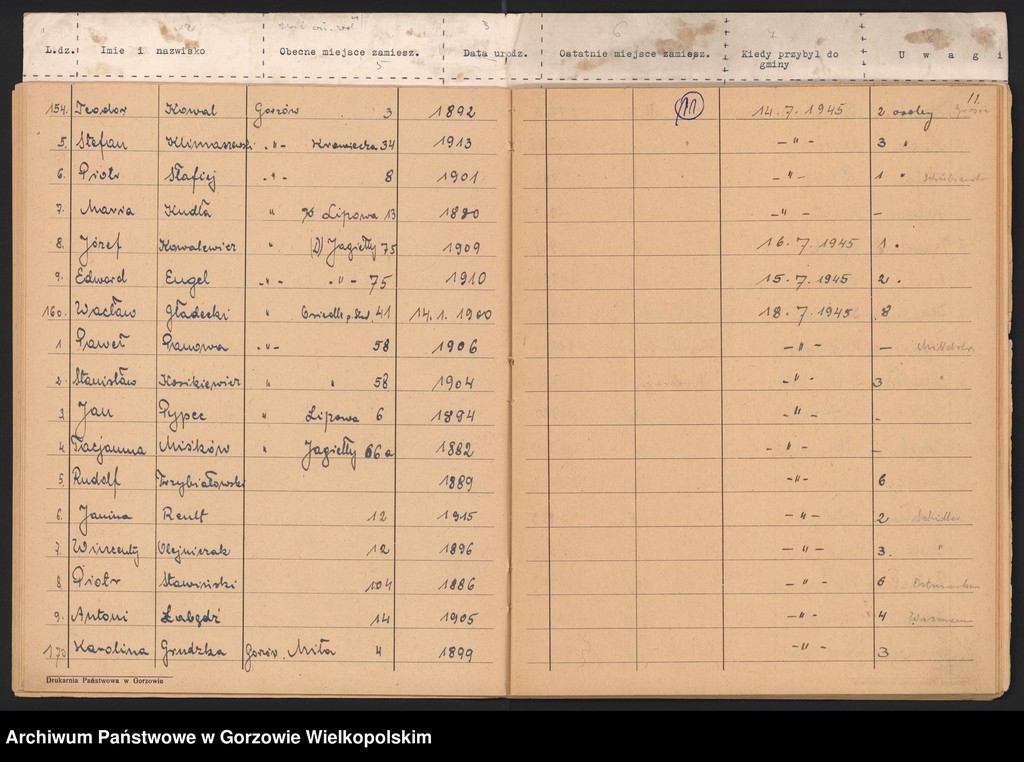 L.dz. Imie i nazwisko Obecne miejsce zamiesz. Data urodz. Ostatnie miejsce zamiesz. Kiedy przybył do gminy U w a g i
5
11 11.
154. Teodor Kowal Gorzów 3 1892 14.7.1945 2 osoby
5. Stefan Klimaszewski -"- Krawiecka 34 1913 -"- 3 "
6. Piotr Słafiej -"- 8 1901 -"- 1 "
7. Maria Kudła " Lipowa 13 1880 -"- -
8. Józef Kowalewicz " Jagiełły 75 1909 16.7.1945 1 "
9. Edward Engel -"- -"- 75 1910 15.7.1945 2 "
160. Wacław Gładecki " 41 14.1.1900 18.7.1945 8
1 Paweł Panowa -"- 58 1906 -"- -
2. Stanisław Kosikiewicz " " 58 1904 -"- 3 "
3. Jan Pypec " Lipowa 6 1894 -"- -
4 Tacjanna Miśków " Jagiełły 66a 1882 -"- -
5. Rudolf Trzybiałowski 1889 -"- 6
6. Janina Reult 12 1915 -"- 2
7. Wincenty Olejniczak 12 1896 -"- 3. "
8 Piotr Stawiński 104 1886 -"- 6
9. Antoni Łabędź 14 1905 -"- 4
170 Karolina Grudzka Gorzów. Miła 4 1899 -"- 3
Drukarnia Państwowa w Gorzowie
Archiwum Państwowe w Gorzowie Wielkopolskim